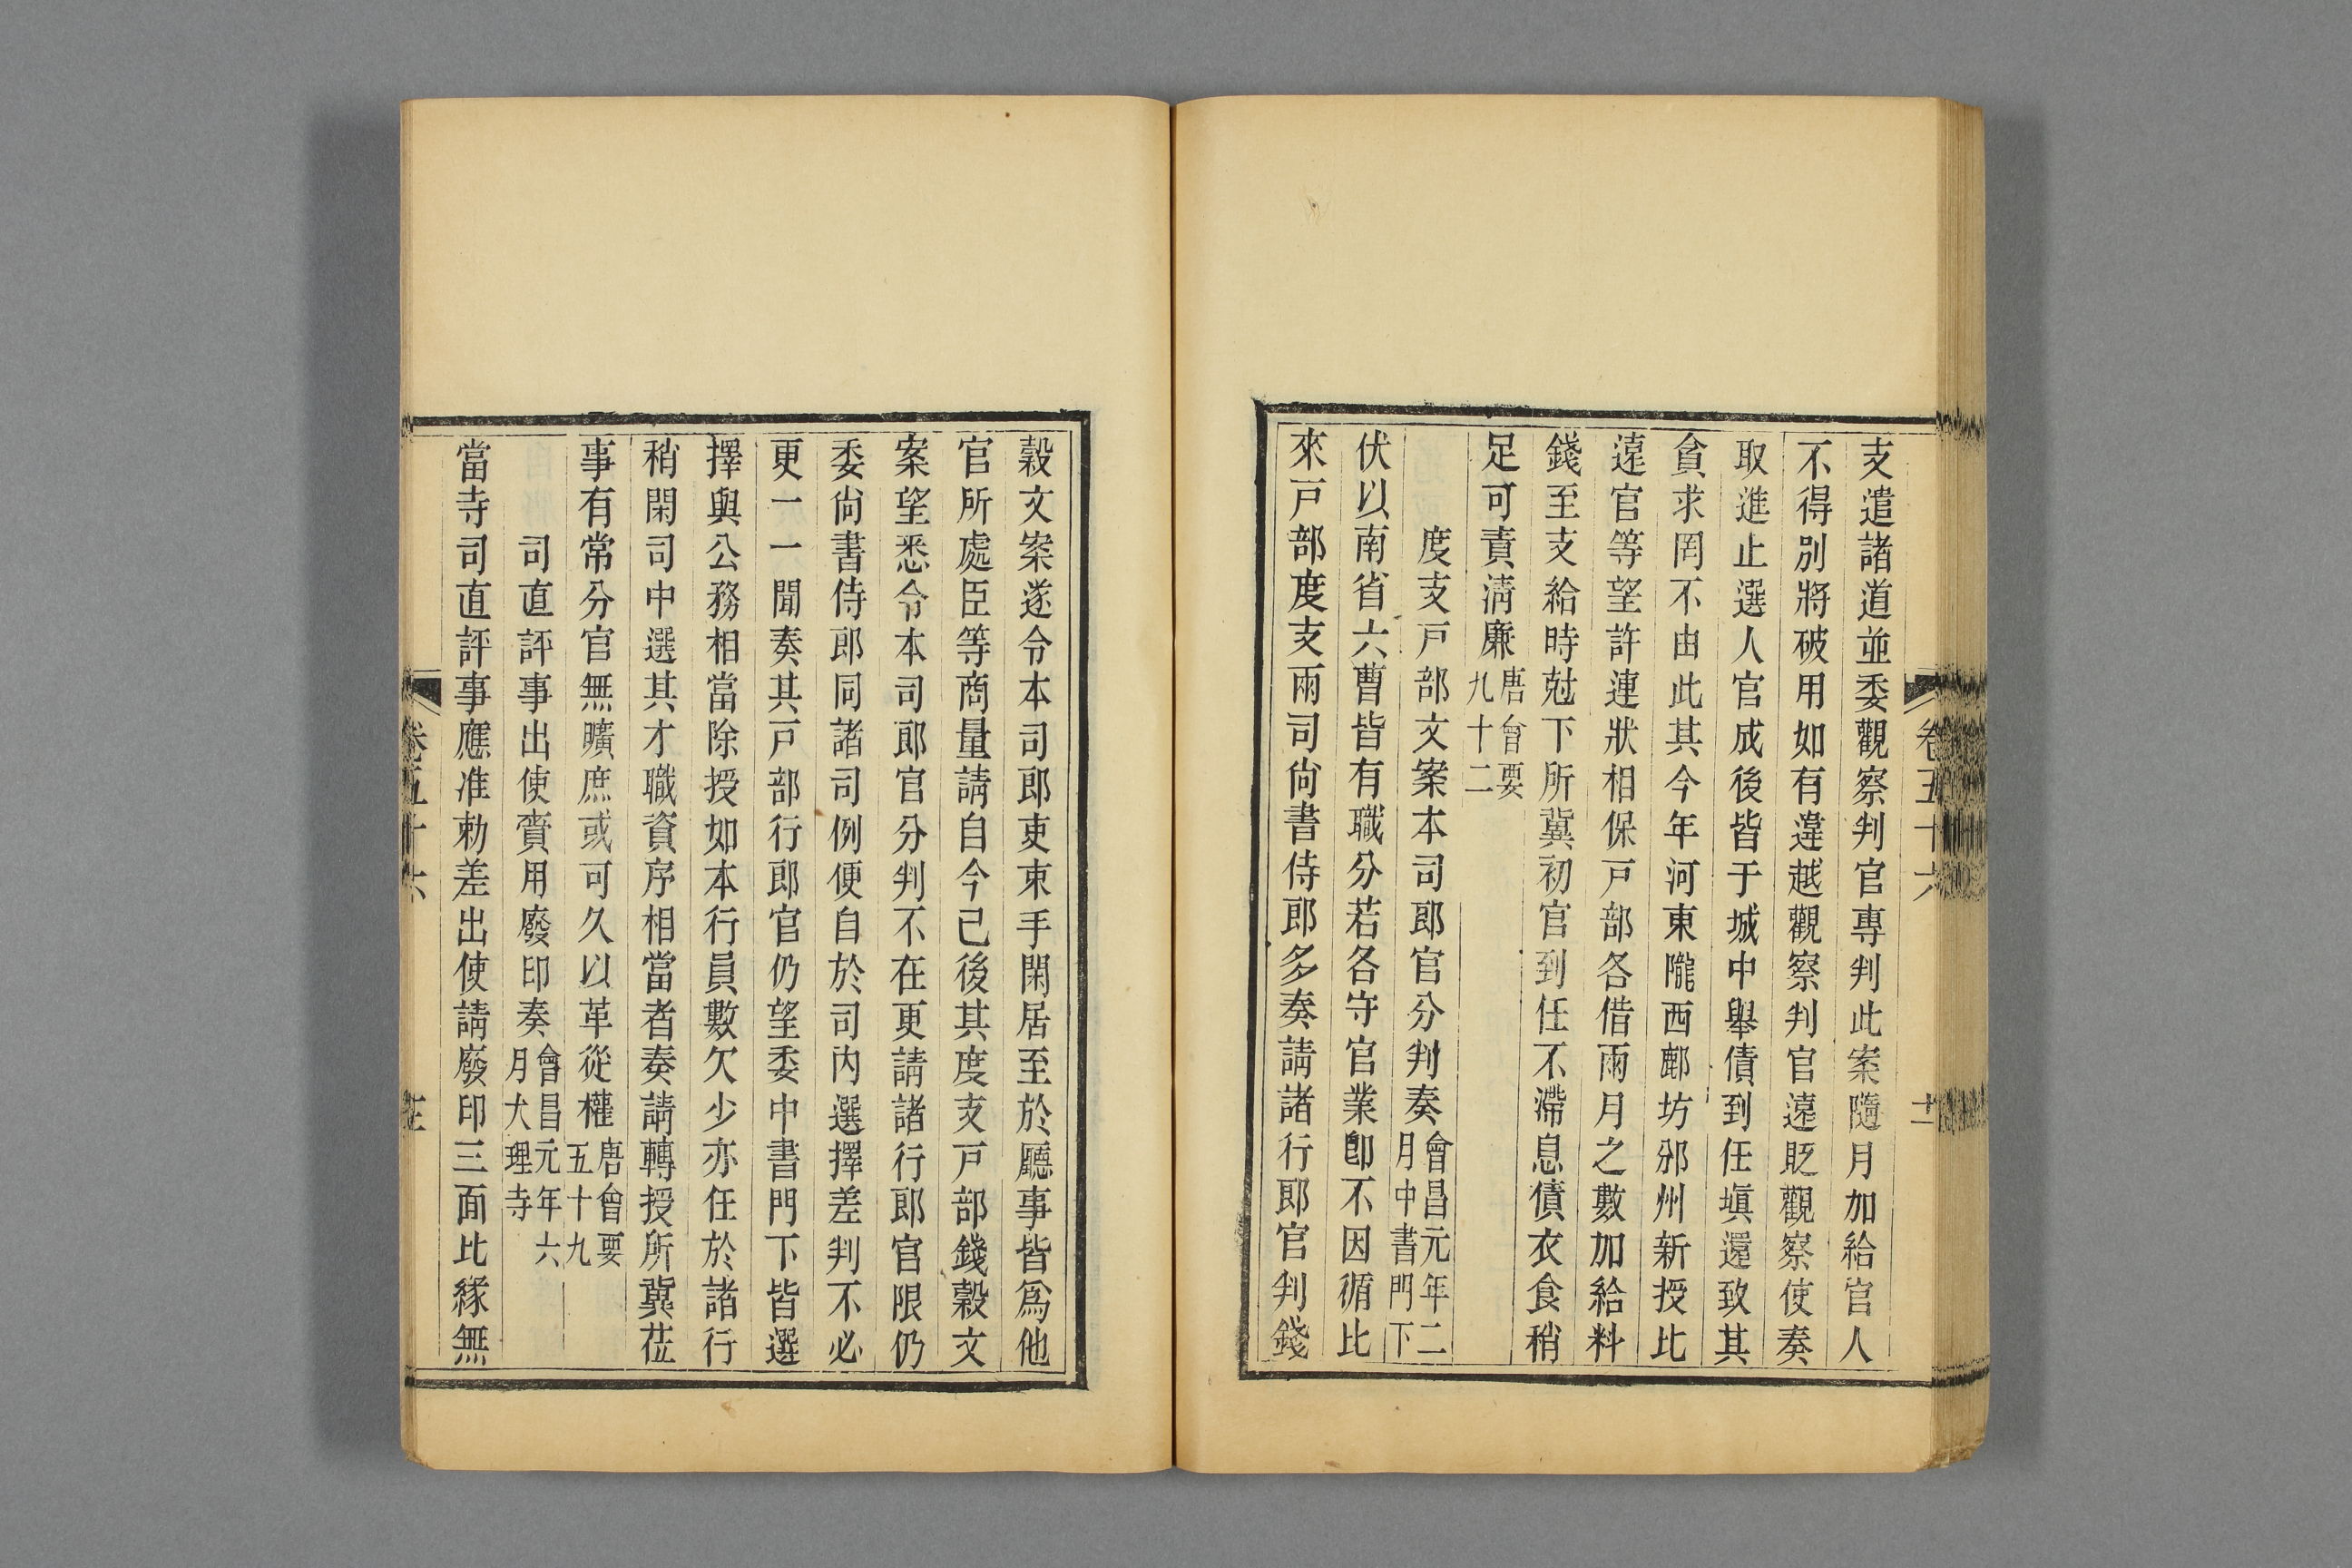 支遣諸道並委觀察判官專判此案隨月加給官人
不得別將破用如有違越觀察判官遠貶觀察使奏
取進止選人官成後皆于城中舉債到任塡還致其
貪求罔不由此其今年河東隴西鄜坊邠州新授比
遠官等望許連狀相保戸部各借兩月之數加給料
錢至支給時尅下所冀初官到任不滯息債衣食稍
足可責淸廉唐會要九十二
度支戸部文案本司郎官分判奏會昌元年二月中書門下
伏以南省六曹皆有職分若各守官業卽不因循比
來戸部度支兩司尙書侍郎多奏請諸行郎官判錢
卷五十六
穀文案遂令本司郎吏束手閑居至於廳事皆爲他
官所處臣等商量請自今己後其度支戸部錢穀文
案望悉令本司郎官分判不在更請諸行郎官限仍
委尙書侍郎同諸司例便自於司內選擇差判不必
更一一聞奏其戸部行郎官仍望委中書門下皆選
擇與公務相當除授如本行員數欠少亦任於諸行
稍閑司中選其才職資序相當者奏請轉授所冀莅
事有常分官無曠庶或可久以革從權唐會要五十九
司直評事出使賫用廢印奏會昌元年六月大理寺
當寺司直評事應准勅差出使請廢印三面比緣無
卷五十六